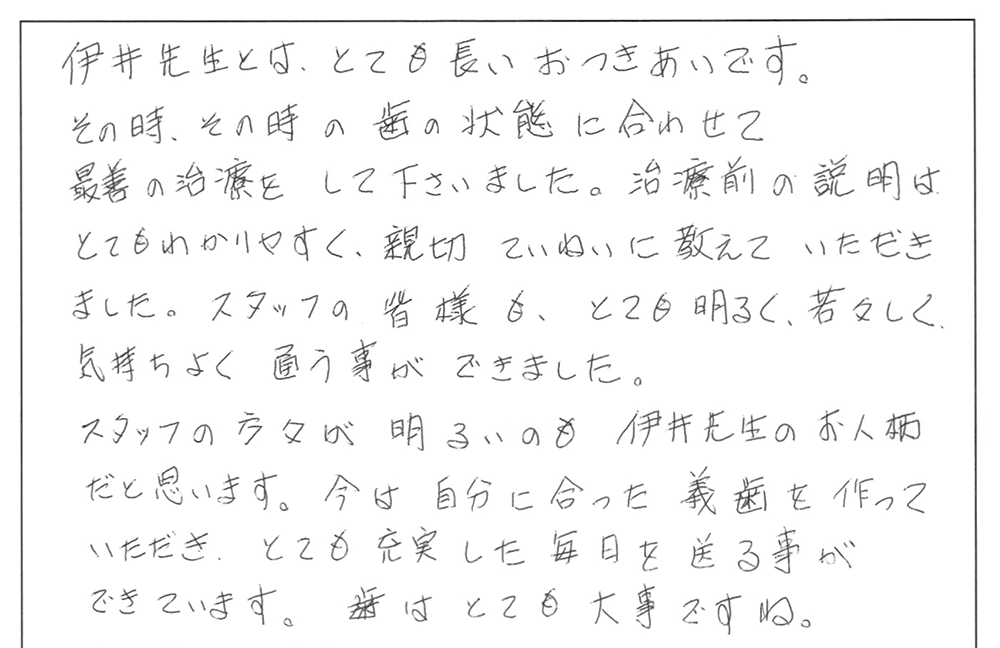 伊井先生とは、とても長いおつきあいです。
その時、その時の歯の状態に合わせて
最善の治療をして下さいました。治療前の説明は
とてもわかりやすく、親切ていねいに教えていただき
ました。スタッフの皆様も、とても明るく、若々しく、
気持ちよく通う事ができました。
スタッフの方々が明るいのも伊井先生のお人柄
だと思います。今は自分に合った義歯を作って
いただき、とても充実した毎日を送る事が
できています。歯はとても大事ですね。